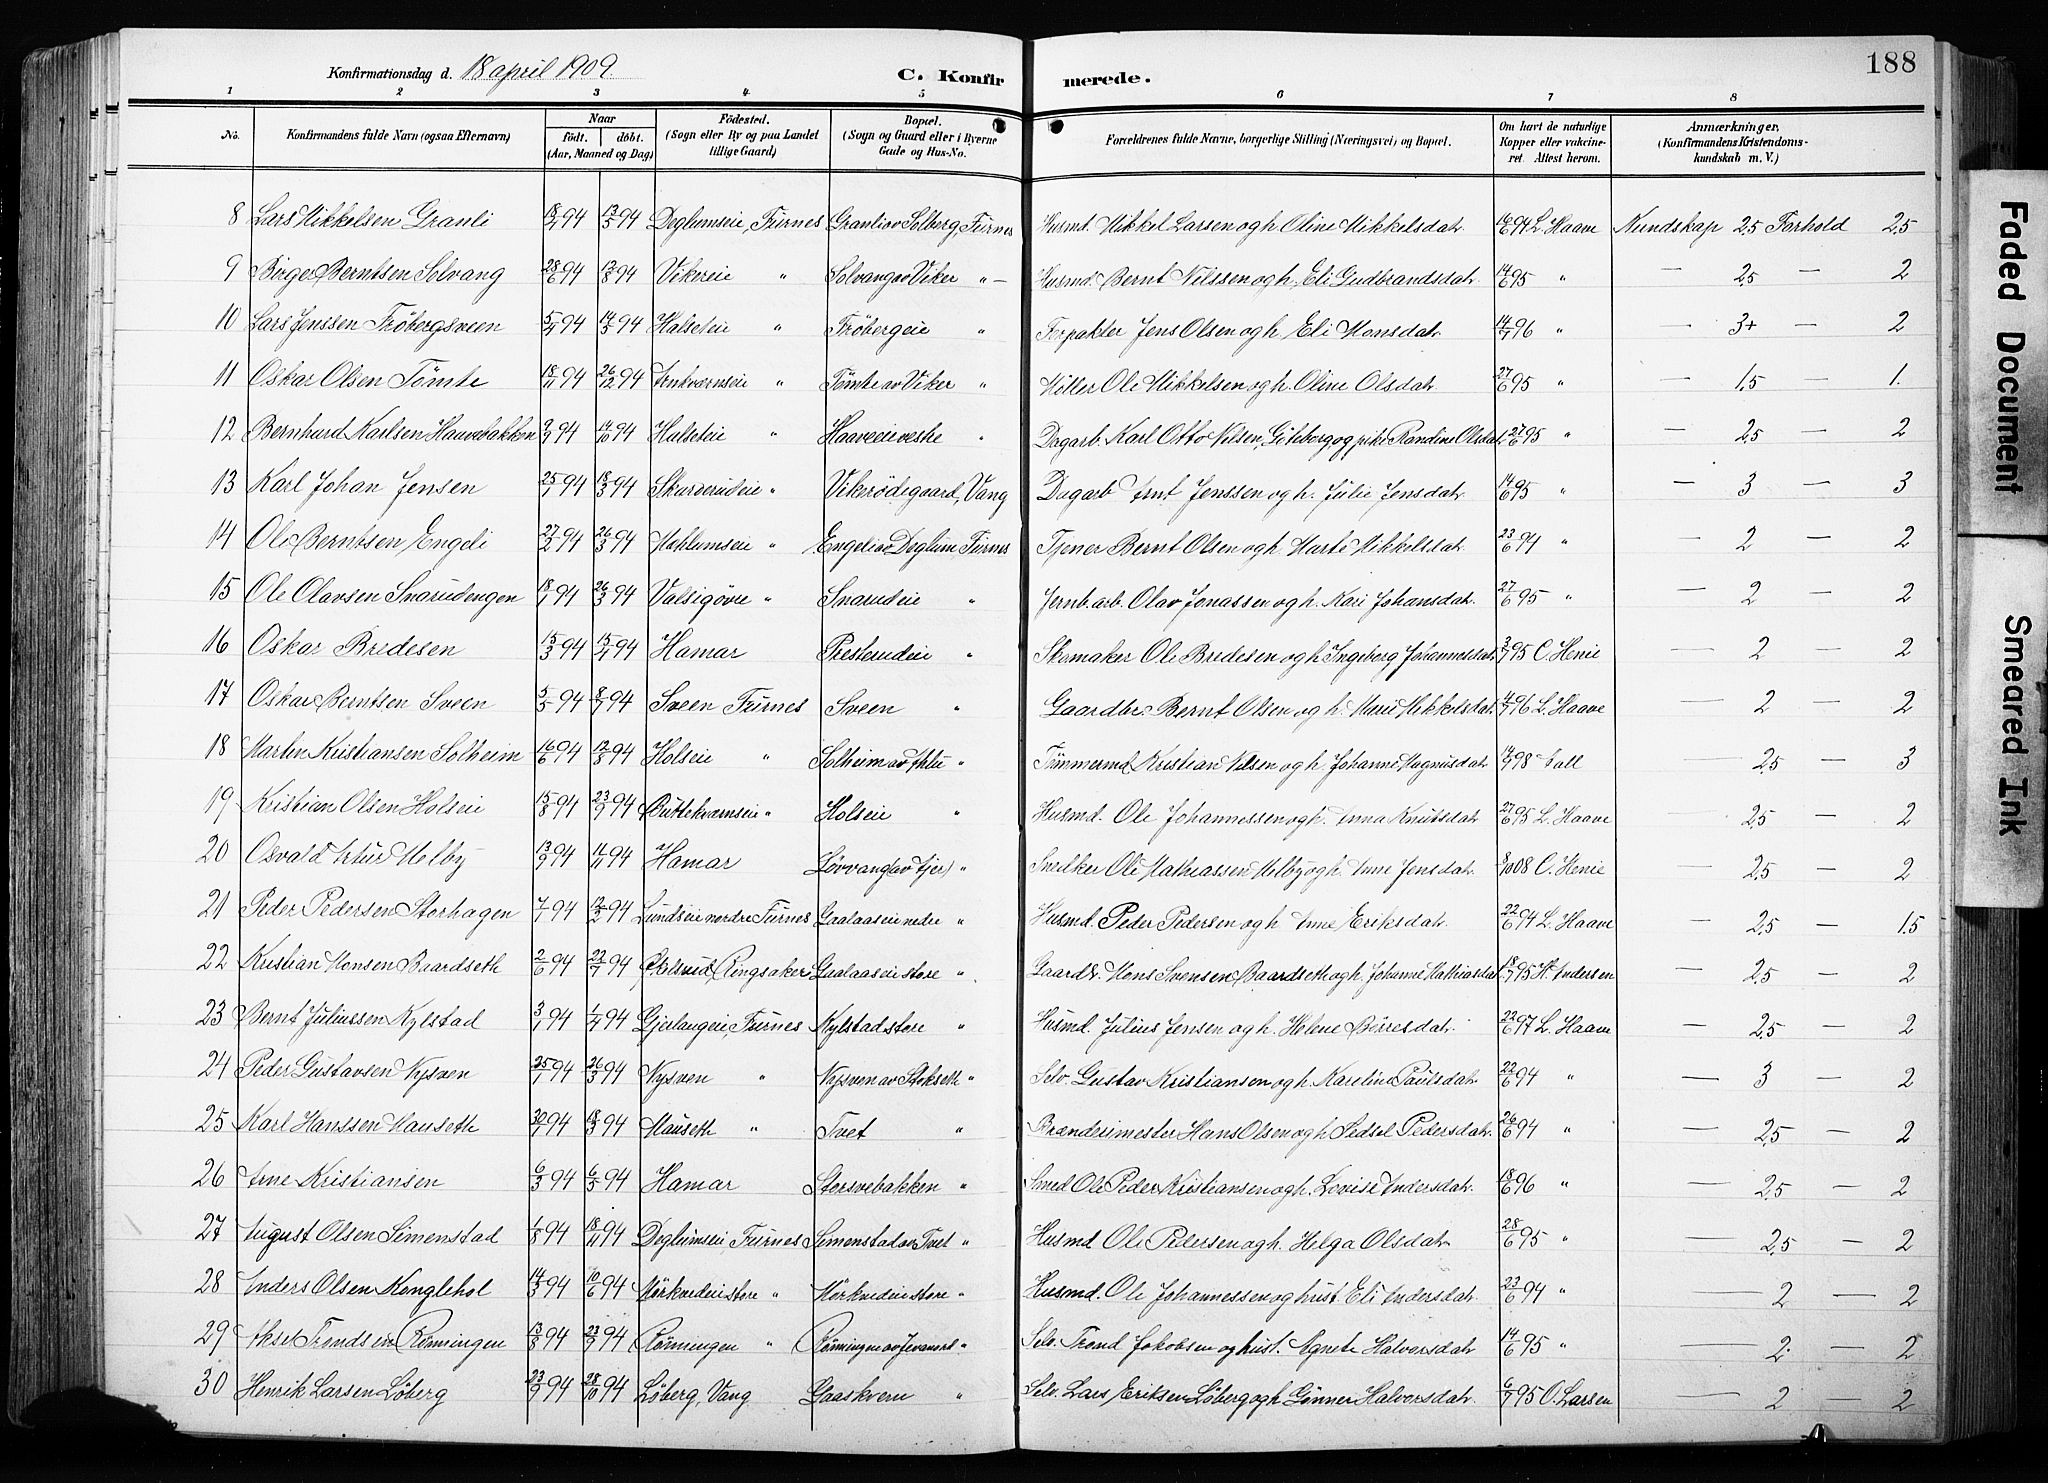 188
Konfirmationsdag d. 18 april 1909.
C. Konfirmerede.
1 2 3 4 5 6 7 8
No.
Konfirmandens fulde Navn (ogsaa Efternavn)
Naar
født. døbt.
(Aar, Maaned og Dag)
Fødested.
(Sogn eller By og paa Landet
tillige Gaard)
Bopæl.
(Sogn og Gaard eller i Byerne
Gade og Hus-No.
Forældrenes fulde Navne, borgerlige Stilling (Næringsvei) og Bopæl.
Om havt de naturlige
Kopper eller vakcine-
ret. Attest herom.
Anmærkninger.
(Konfirmandens Kristendoms-
kundskab m. V.)
8 Lars Mikkelsen Granli 18/4 94 13/5 94 Deglumseie, Furnes Granli av Solberg, Furnes Husmd. Mikkel Larsen og h. Oline Mikkelsdatr 14/6 94 L. Haave Kundskap 2.5 Forhold 2.5
9 Birger Berntsen Solvang 28/6 94 12/8 94 Vikereie " Solvang av Viker " Husmd. Bernt Nilssen og h. Eli Gudbrandsdatr 14/6 95 " — 2.5 — 2
10 Lars Jenssen Frøbergsveen 5/4 94 14/5 94 Halseteie " Frøbergeie " Forpakter Jens Olsen og h. Eli Monsdatr 14/7 96 " — 3+ — 2
11 Oskar Olsen Tømte 18/11 94 26/12 94 Arnkværnseie " Tømte av Viker " Møller Ole Mikkelsen og h. Oline Olsdatr 27/6 95 " — 1.5 — 1.
12 Bernhard Karlsen Haavebakken 94 14/10 94 Halseteie " Haaveeie vestre " Dagarb. Karl Otto Nilsen, Göteborg og pike Randine Olsdatr 27/6 95 " — 2.5 — 2
13 Karl Johan Jensen 25/1 94 18/3 94 Skurverudeie " Vikerødegaard, Vang Dagarb Arnt Jenssen og h. Julie Jensdatr 14/6 95 " — 3 — 3
14 Ole Berntsen Engeli 27/2 94 26/3 94 Meklumseie " Engeli av Deglum Furnes Tjener Bernt Olsen og h. Marte Mikkelsdatr 23/6 94 " — 2 — 2
15 Ole Olavsen Snarudengen 18/1 94 26/3 94 Valsigøvre " Snarudeie " Jernb.arb. Olav Jonassen og h. Kari Johansdatr 27/6 95 " — 2 — 2
16 Oskar Bredesen 15/3 94 15/4 94 Hamar Presterudeie " Skomaker Ole Bredesen og h Ingeborg Johannesdatr 3/7 95 C. Henie — 2 — 2
17 Oskar Berntsen Sveen 5/5 94 8/7 94 Sveen Furnes Sveen " Gaardbr. Bernt Olsen og h. Marie Mikkelsdatr 4/7 96 L. Haave — 2 — 2
18 Martin Kristiansen Solheim 16/6 94 12/8 94 Holseie " Solheim av " Tømmermd. Kristian Nilsen og h. Johanne Magnusdatr 14/9 98 — 2.5 — 3
19 Kristian Olsen Holseie 15/8 94 23/9 94 Buttekværnseie " Holseie " Husmd. Ole Johannessen og h. Anna Knutsdatr 27/6 95 L. Haave — 2.5 — 2
20 Osvald Artur Melby 13/9 94 11/11 94 Hamar Løvvang (av Ajer) " Snedker Ole Mathiassen Melby og h. Anne Jensdatr 8/10 08 C. Henie — 2.5 — 2
21 Peder Pedersen Storhagen 7/1 94 12/2 94 Lundseie nordre Furnes Gaalaaseie nedre " Husmd. Peder Pedersen og h Anne Eriksdatr. 22/6 94 L. Haave — 2.5 — 1.5
22 Kristian Monsen Baardseth 2/6 94 22/7 94 Ringsaker Gaalaaseie store " Gaardbr. Mons Svensen Baardseth og h. Johanne Mathiasdatr 18/7 95 H. Andersen — 2.5 — 2
23 Bernt Juliussen Kylstad 3/1 94 1/4 94 Gjerlangeie, Furnes Kylstad store " Husmd. Julius Jensen og h. Helene Børresdatr 22/6 97 L. Haave — 2.5 — 2
24 Peder Gustavsen Nysven 25/1 94 26/3 94 Nysven " Nysven av Stokseth " Selv. Gustav Kristiansen og h. Karelina Paulsdatr 22/6 94 " — 3 — 2
25 Karl Hanssen Mauseth 30/1 94 18/3 94 Mauseth " Tvet " Brænderimester Hans Olsen og h Sidsel Pedersdatr. 26/6 94 " — 2.5 — 2
26 Arne Kristiansen 6/3 94 6/5 94 Hamar Storsvebakken " Smed Ole Peder Kristiansen og h. Lovise Andersdatr. 18/6 96 " — 2.5 — 2
27 August Olsen Simenstad 1/8 94 18/11 94 Deglumseie Furnes Simenstad av Tvet " Husmd Ole Pedersen og h. Helga Olsdatr 28/6 95 " — 2.5 — 2
28 Anders Olsen Konglehol 14/3 94 10/6 94 Mørkvedeie store " Mørkvedeie store " Husmd. Ole Johannessen og hust. Eli Andersdatr. 23/6 94 " — 2 — 2
29 Aksel Trondsen Rønningen 13/8 94 23/9 94 Rønningen " Rønningen av Jevanord " Selv. Trond Jakobsen og hust. Agnete Halvorsdatr 14/6 95 " — 2. — 2
30 Henrik Larsen Løberg 23/9 94 28/10 94 Løberg, Vang Gaaskvern " Selv. Lars Eriksen Løberg og h. Gunner Halvorsdatr. 6/7 95 O. Larsen — 2 — 2
Faded Document
Smeared Ink